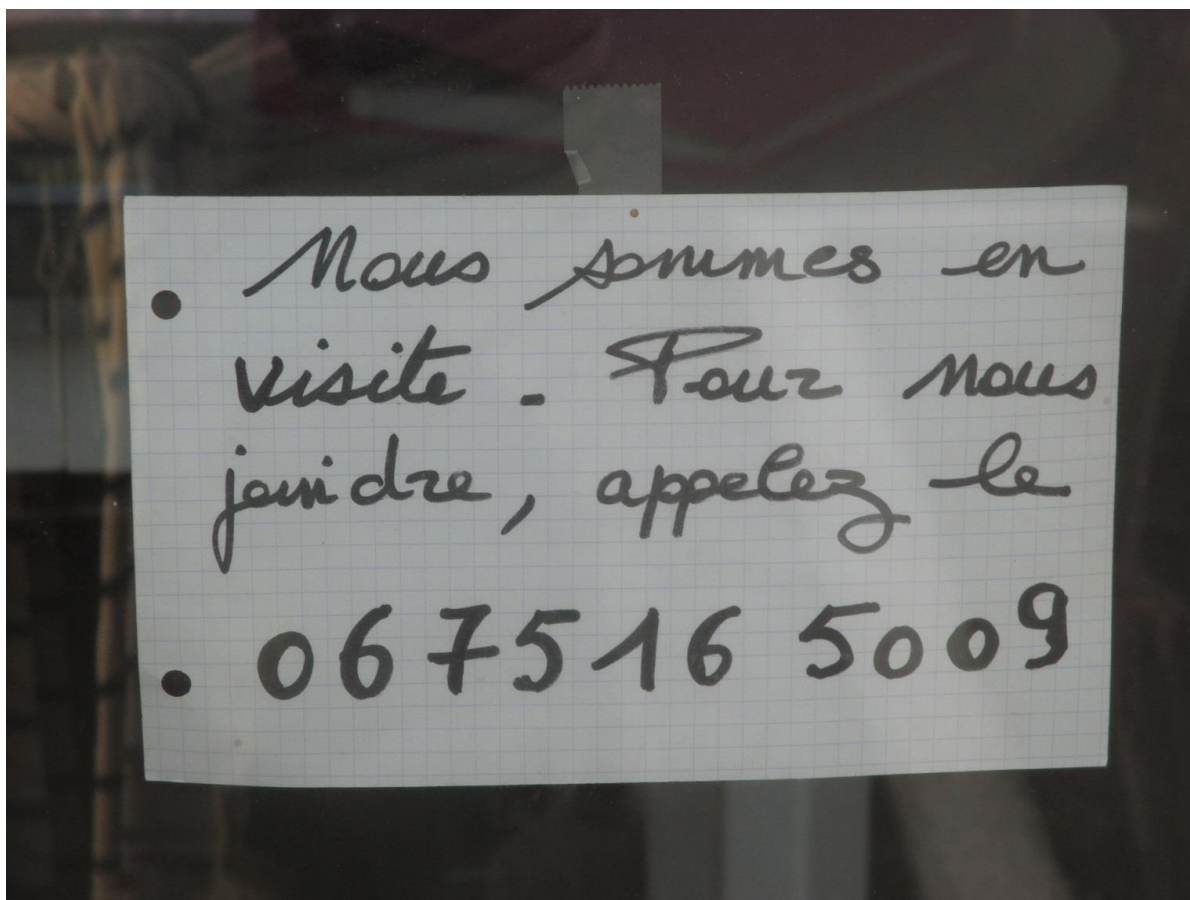 Nous sommes en
visite - Pour nous
joindre, appelez le
067516 5009